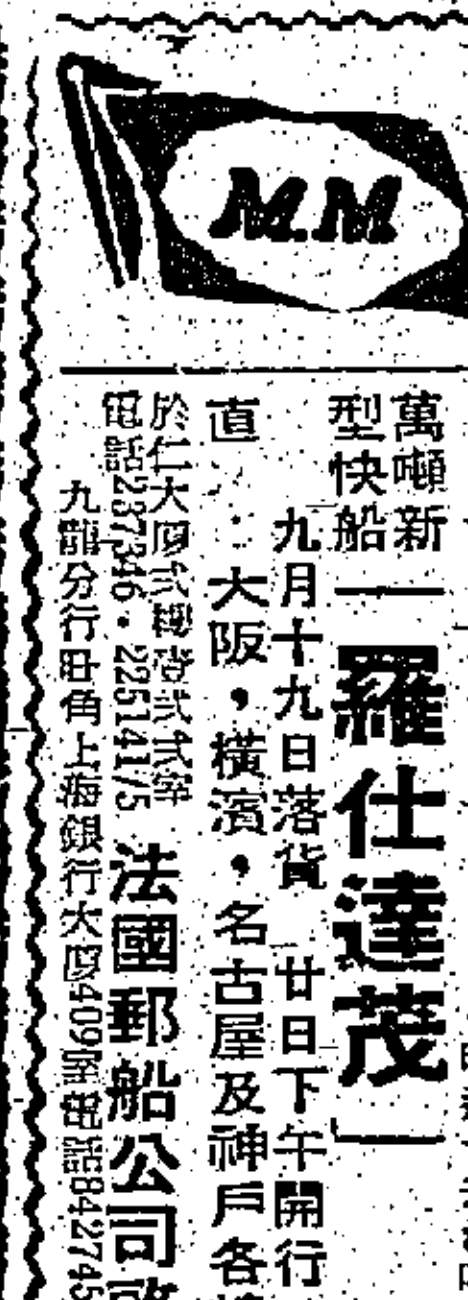 M.M
萬噸新
型快船
羅仕達茂
九月十九日落貨 廿日下午開行
直
大阪，橫濱，名古屋及神戶各
於仁大厦弍樓壹弍弍室
電話237346・225141/5
法國郵船公司啟
九龍分行旺角上海銀行大厦409室電話842745